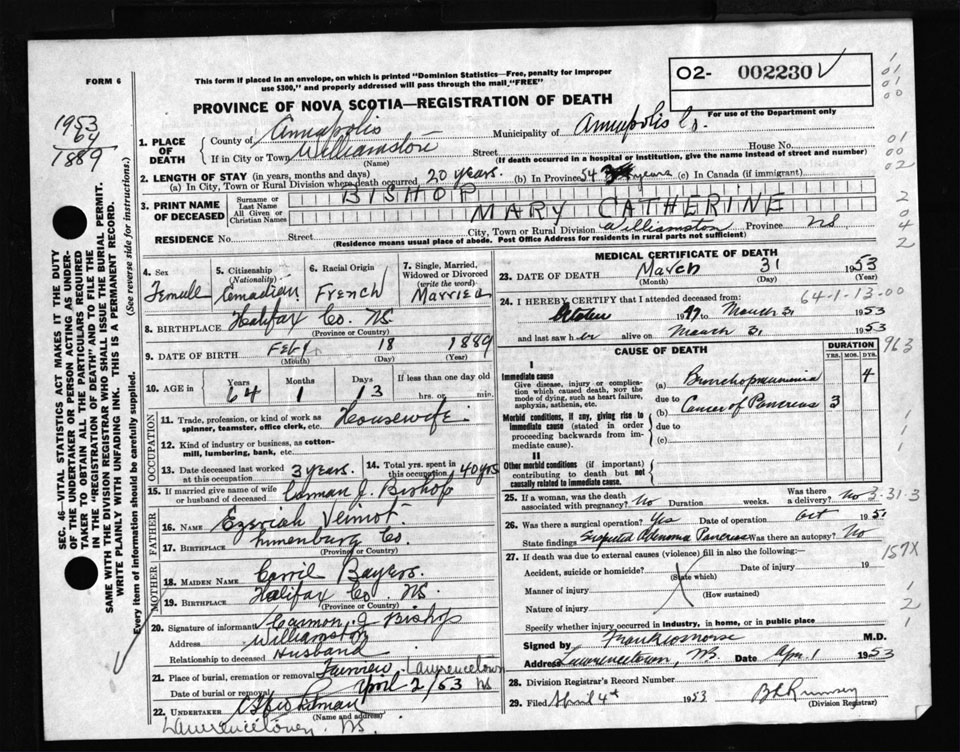 FORM 6
This form if placed in an envelope, on which is printed "Dominion Statistics—Free, penalty for improper
use $300," and properly addressed will pass through the mail "FREE"
O2- 002230
For use of the Department only
PROVINCE OF NOVA SCOTIA—REGISTRATION OF DEATH
1953
64
1889
1. PLACE OF DEATH
County of Annapolis Municipality of Annapolis Co.
If in City or Town Williamston Street House No.
(Name) (If death occurred in a hospital or institution, give the name instead of street and number)
2. LENGTH OF STAY (in years, months and days)
(a) In City, Town or Rural Division where death occurred 20 years. (b) In Province 54 years (c) In Canada (if immigrant)
3. PRINT NAME OF DECEASED
Surname or Last Name BISHOP
All Given or Christian Names MARY CATHERINE
RESIDENCE No. Street City, Town or Rural Division Williamston Province NS
(Residence means usual place of abode. Post Office Address for residents in rural parts not sufficient)
4. Sex Female
5. Citizenship (Nationality) Canadian
6. Racial Origin French
7. Single, Married, Widowed or Divorced (write the word) Married
8. BIRTHPLACE Halifax Co. NS
(Province or Country)
9. DATE OF BIRTH Feby 18 1889
(Month) (Day) (Year)
10. AGE in Years Months Days If less than one day old
64 1 13 hrs. or min.
OCCUPATION
11. Trade, profession, or kind of work as spinner, teamster, office clerk, etc. Housewife
12. Kind of industry or business, as cotton-mill, lumbering, bank, etc.
13. Date deceased last worked at this occupation 3 years.
14. Total yrs. spent in this occupation 40 yrs
15. If married give name of wife or husband of deceased Carman J. Bishop
FATHER
16. NAME Veinot
17. BIRTHPLACE Lunenburg Co.
(Province or Country)
MOTHER
18. MAIDEN NAME Carrie Bayers
19. BIRTHPLACE Halifax Co. NS
(Province or Country)
20. Signature of informant Carmon J Bishop
Address Williamston
Relationship to deceased Husband
21. Place of burial, cremation or removal Fairview Lawrencetown
Date of burial or removal April 2/53 NS
22. UNDERTAKER
(Name and address)
Lawrencetown, NS.
MEDICAL CERTIFICATE OF DEATH
23. DATE OF DEATH March 31 1953
(Month) (Day) (Year)
64-1-13-00
24. I HEREBY CERTIFY that I attended deceased from:
October 19 to March 31 1953
and last saw her alive on March 31 1953
CAUSE OF DEATH
DURATION
YRS. MOS. DYS.
I
Immediate cause
Give disease, injury or complication which caused death, NOT the mode of dying, such as heart failure, asphyxia, asthenia, etc.
(a) Bronchopneumonia 4
due to
Morbid conditions, if any, giving rise to immediate cause (stated in order proceeding backwards from immediate cause).
(b) Cancer of Pancreas 3
due to
(c)
II
Other morbid conditions (if important) contributing to death but not causally related to immediate cause.
25. If a woman, was the death associated with pregnancy? No Duration weeks. Was there a delivery? No
3-31-3
26. Was there a surgical operation? Yes Date of operation Oct 1951
State findings Pancreas Was there an autopsy? No
157X
27. If death was due to external causes (violence) fill in also the following:—
Accident, suicide or homicide? Date of injury 19
(State which)
Manner of injury
(How sustained)
Nature of injury
Specify whether injury occurred in industry, in home, or in public place
Signed by M.D.
Address Lawrencetown, NS Date Apr. 1 1953
28. Division Registrar's Record Number
29. Filed April 4th 1953
(Division Registrar)
SEC. 46—VITAL STATISTICS ACT MAKES IT THE DUTY
OF THE UNDERTAKER OR PERSON ACTING AS UNDER-
TAKER TO OBTAIN ALL THE PARTICULARS REQUIRED
IN THE "REGISTRATION OF DEATH" AND TO FILE THE
SAME WITH THE DIVISION REGISTRAR WHO SHALL ISSUE THE BURIAL PERMIT.
WRITE PLAINLY WITH UNFADING INK. THIS IS A PERMANENT RECORD.
Every item of information should be carefully supplied. (See reverse side for instructions.)